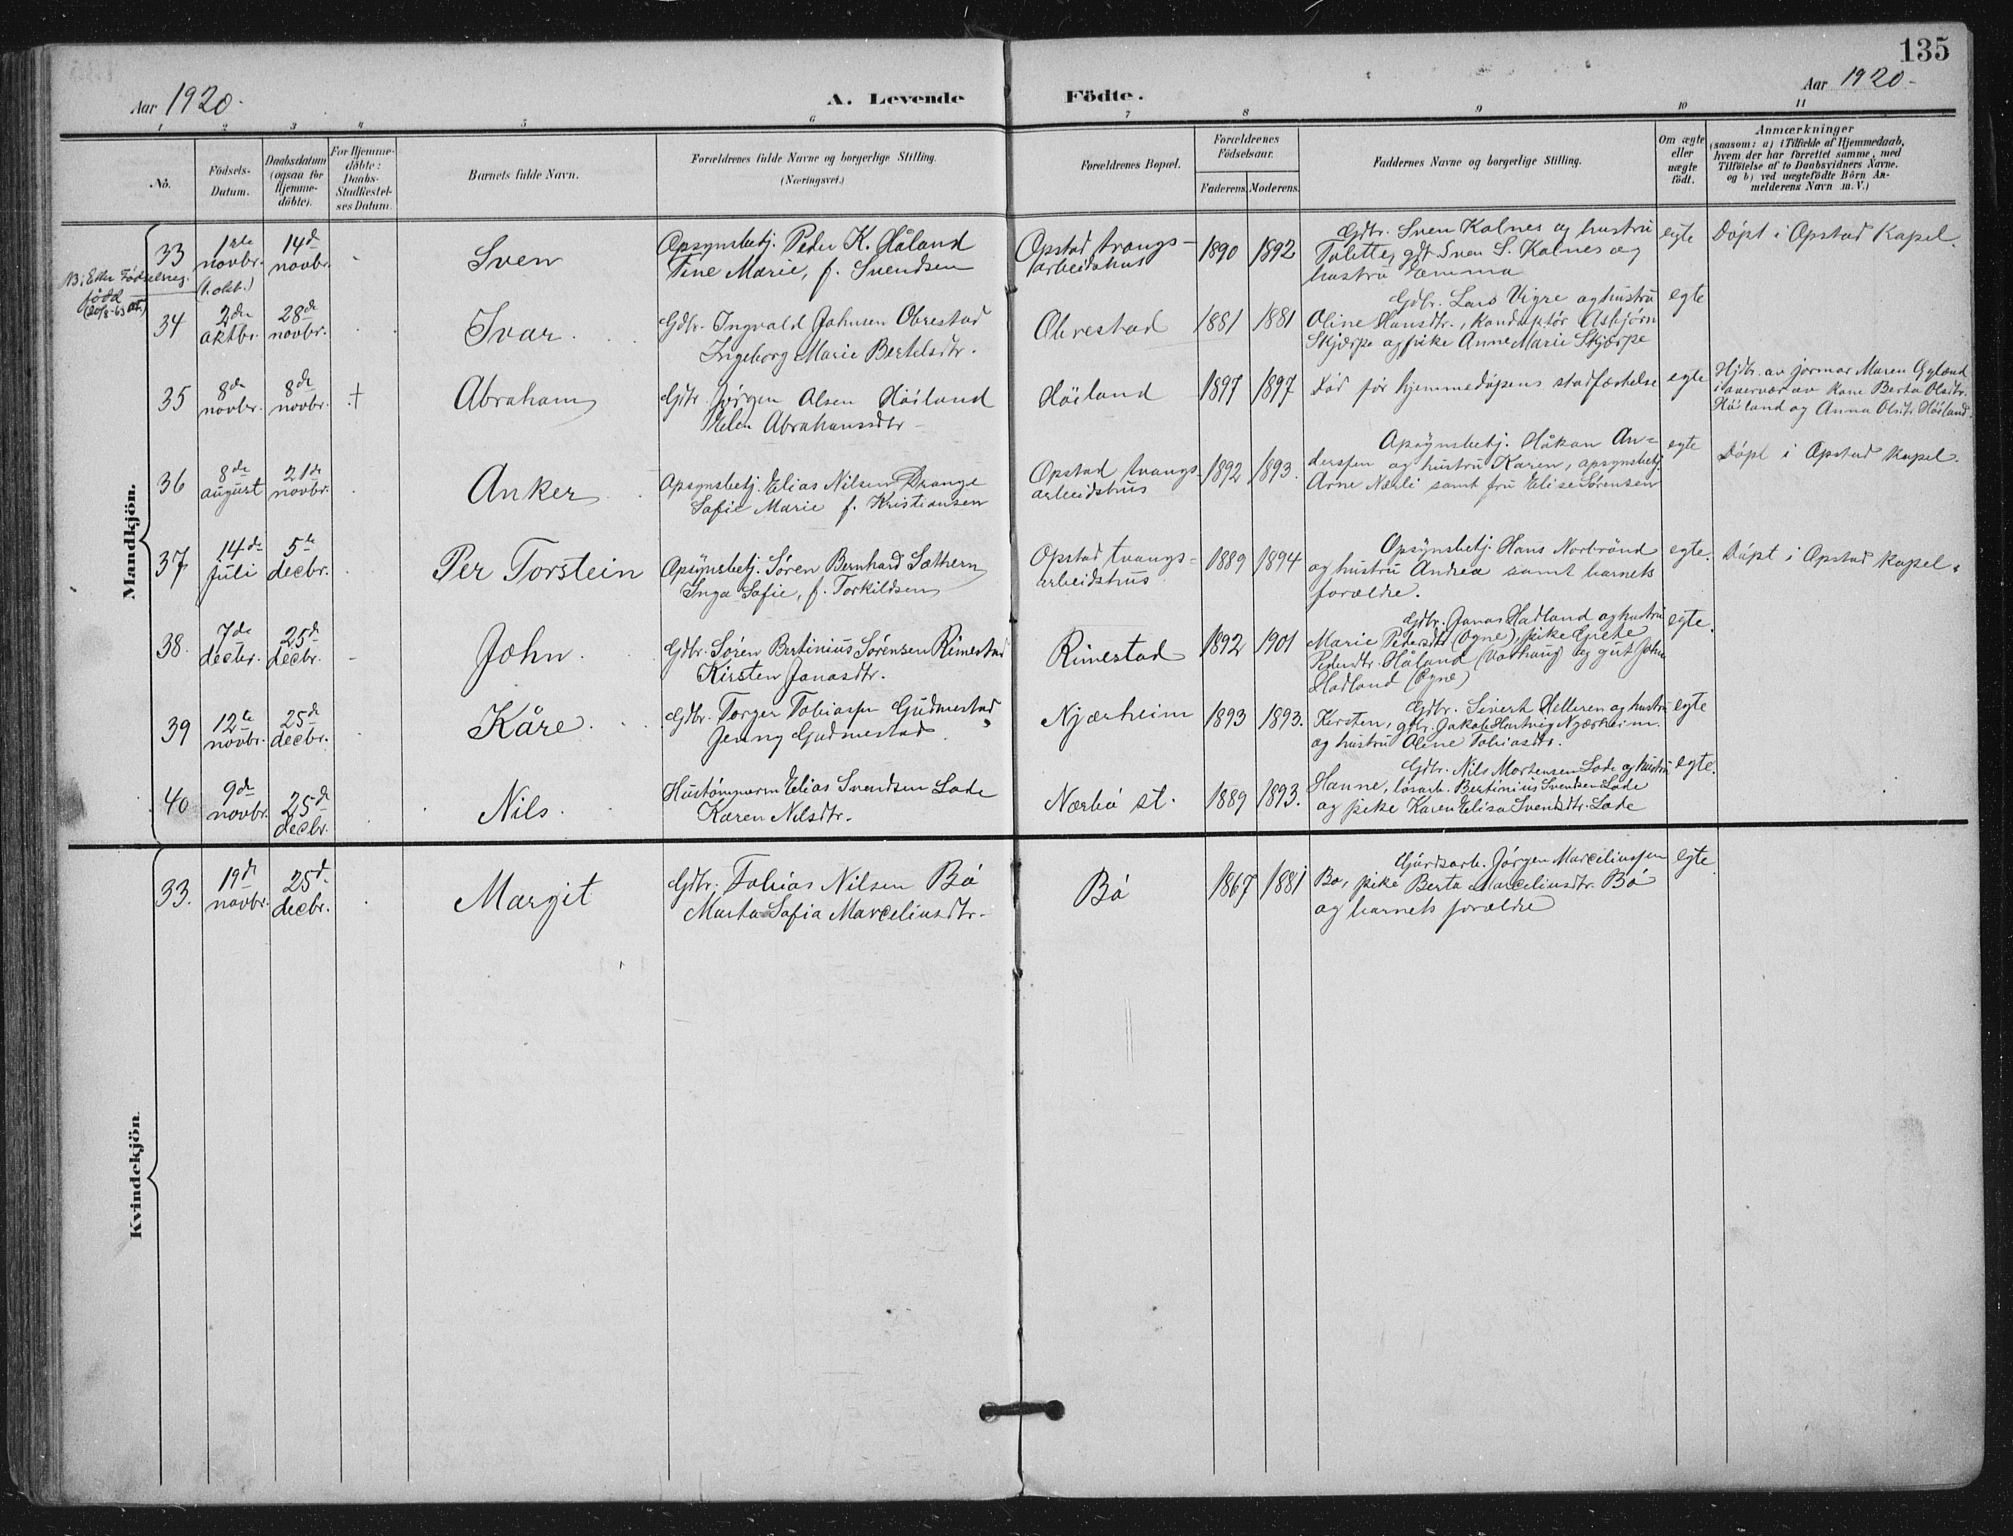 135
Aar 1920.
A. Levende Födte.
Aar 1920.
1 2 3 4 5 6 7 8 9 10 11
No.
Födsels-
Datum.
Daabsdatum
(ogsaa for
Hjemme-
döbte).
For Hjemme-
döbte:
Daabs-
Stadfæstel-
ses Datum.
Barnets fulde Navn.
Forældrenes fulde Navne og borgerlige Stilling.
(Næringsvei.)
Forældrenes Bopæl.
Forældrenes
Födselsaar.
Faderens. Moderens.
Faddernes Navne og borgerlige Stilling.
Om ægte
eller
uægte
født.
Anmærkninger
(saasom: a) i Tilfælde af Hjemmedaab,
hvem der har forrettet samme, med
Tilföielse af to Daabsvidners Navne,
og b) ved uægtefödte Börn An-
melderens Navn m. V.)
Mandkjön.
33 1ste novbr. 14de novbr. Sven
Opsynsbetj. Peder K. Håland
Tine Marie, f. Svendsen
Opstad tvangs-
arbeidshus
1890 1892
Gdbr. Sven Kalnes og hustru
Tolette, gdr Sven S. Kalnes og
hustru Emma
egte
Döpt i Opstad Kapel.
født (1. okt.)
34 2den oktbr. 28de novbr. Ivar.
Gdbr. Ingvald Johnsen Obrestad
Ingeborg Marie Bertelsdtr.
Obrestad
1881 1881
Gdbr. Lars Vigre og hustru
Oline Hansdtr., konduktör Asbjörn
Skjærpe og pike Anne Marie Skjærpe
egte
35 8de novbr. 8de novbr. + Abraham
Gdbr. Jörgen Olsen Höiland
Helen Abrahamsdtr.
Höiland
1897 1897
Död för hjemmedåpens stadfæstelse
egte
Hjdbt. av jormor Maren
i nærvær av kone Berta Olsdtr.
Höiland og Anna Olsdtr. Höiland
36 8de august 21de novbr. Anker
Opsynsbetj. Elias Nilsen Drange
Sofie Marie f. Kristiansen
Opstad tvangs
arbeidshus
1892 1893.
Opsynsbetj. Håkon An-
derssen og hustru Karen, opsynsbetj.
Arne Nærli samt fru Elise Sörensen
egte
Döpt i Opstad Kapel.
37 14de juli 5te decbr. Per Torstein
Opsynsbetj. Sören Bernhard Sæthern
Inga Sofie, f. Torkildsen
Opstad tvangs-
arbeidshus
1889 1894
Opsynsbetj. Hans Norbrönd
og hustru Andrea samt barnets
forældre.
egte.
Döpt i Opstad Kapel.
38. 7de decbr. 25de decbr. John.
Gdbr. Sören Bertinius Sörensen Rimestad
Kirsten Jonasdtr.
Rimestad
1892 1901
Gdbr. Jonas Hadland og hustru
Marie Pedersdtr (Ogne), pike Grete
Pedersdtr. Håland (Varhaug) og gut John
Hadland (Ogne)
egte.
39 12te novbr. 25de decbr. Kåre.
Gdbr. Torger Tobiassen Gudmestad
Jenny Gudmestad.
Njærheim
1893 1893.
Gdbr. Sivert Helleren og hustru
Kirsten, gdbr. Jakob Hartvig Njærheim
og hustru Oline Tobiasdtr.
egte
40 9de novbr. 25de decbr. Nils.
Hustömmerm Elias Svendsen Lode
Karen Nilsdtr.
Nærbö st.
1889 1893.
Gdbr. Nils Mortensen Lode og hustru
Hanne, lösarb. Bertinius Svendsen Lode
og pike Karen Elisa Svendsdtr. Lode
egte.
Kvindekjön.
33. 19de novbr. 25de decbr. Margit
Gdbr. Tobias Nilsen Bö
Marta Sofia Marceliusdtr.
Bö
1867 1881
Gårdsarb. Jörgen Marceliussen
Bö, pike Berta Marceliusdtr. Bö
og barnets forældre
egte.